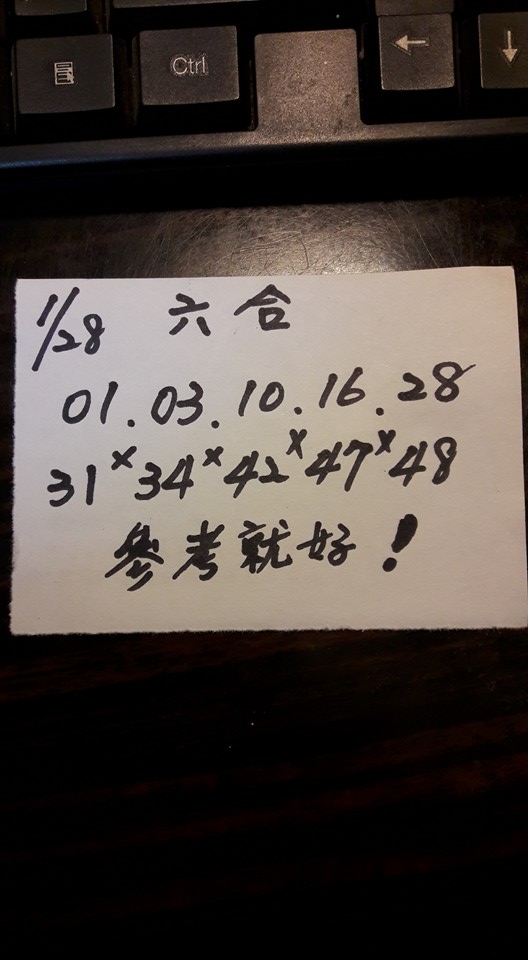 Ctrl
1/28 六合
01.03.10.16.28
31×34×42×47×48
參考就好!